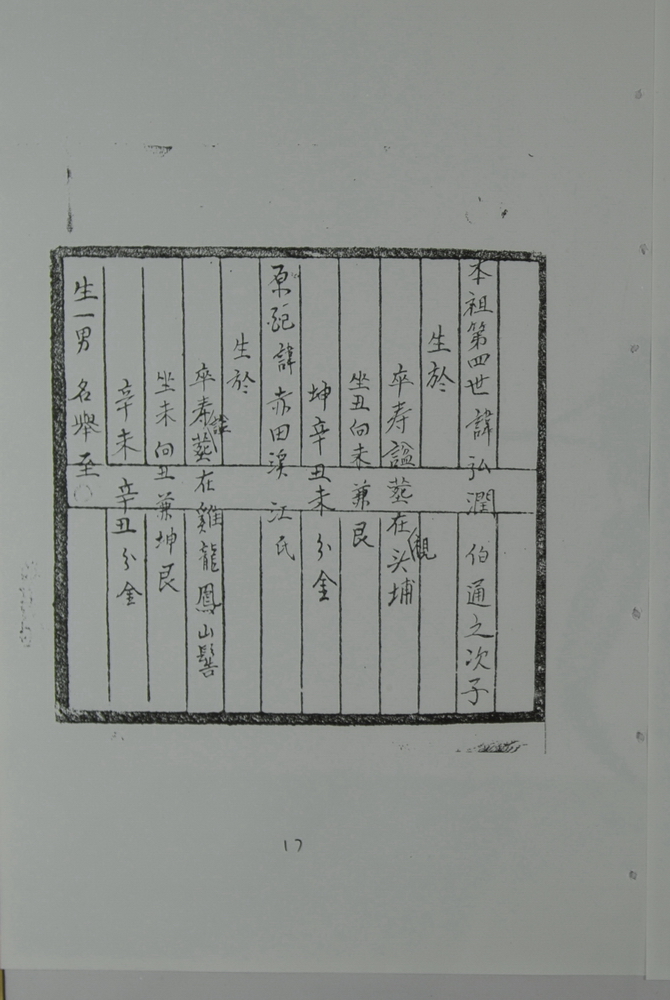 本祖第四世諱弘潤 伯通之次子
生於
卒寿諡葬在头埔
觀
坐丑向未兼艮
坤辛丑未分金
原配諱赤田溪江氏
生於
卒寿葬在雞龍鳳山髻
諡
坐未向丑兼坤艮
辛未辛丑分金
生一男 名舉至
17